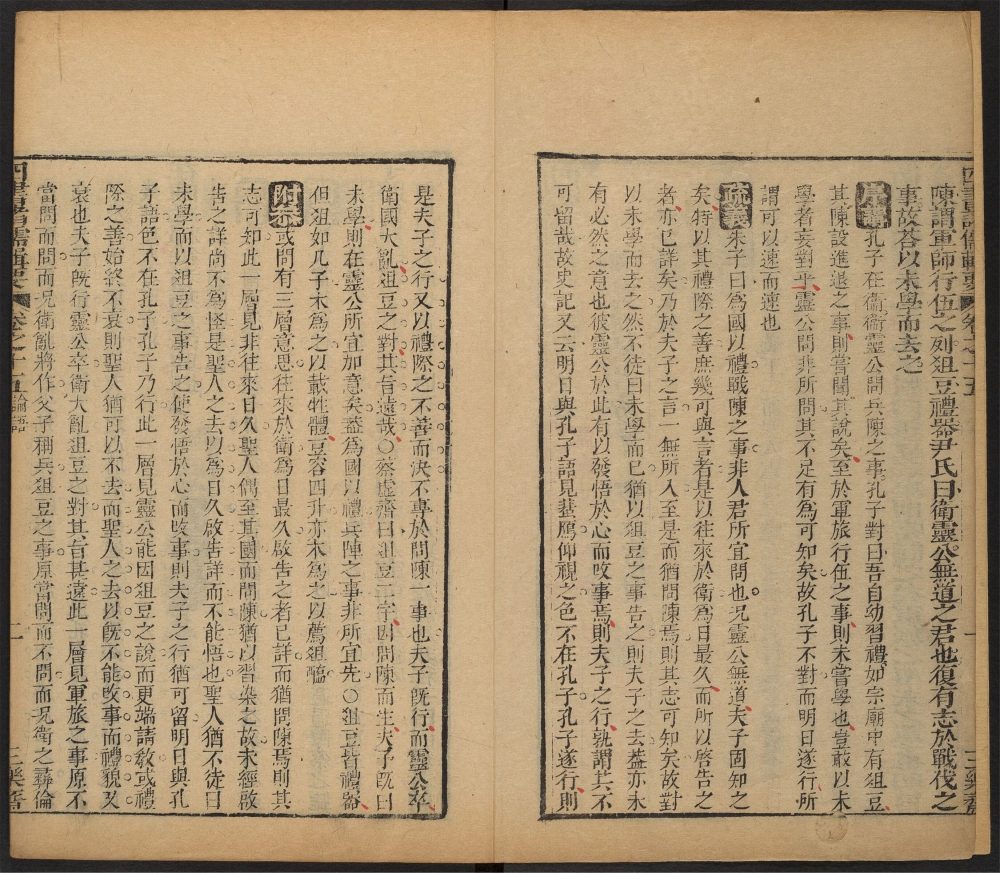 陳謂軍師行伍之列俎豆禮器尹氏曰衛靈公無道之君也復有志於戰伐之
事故答以未學而去之
孔子在衛衛靈公問兵陳之事孔子對曰吾自幼習禮如宗廟中有俎豆
其陳設進退之事則嘗聞其說矣至於軍旅行伍之事則未嘗學也豈敢以未
學者妄對乎靈公問非所問其不足有為可知矣故孔子不對而明日遂行所
謂可以速而速也
疏義朱子曰為國以禮戰陳之事非人君所宜問也况靈公無道夫子固知之
矣特以其禮際之善庶幾可與言者是以往來於衛為日最久而所以啓告之
者亦已詳矣乃於夫子之言一無所入至是而猶問陳焉則其志可知矣故對
以未學而去之然不徒曰未學而已猶以俎豆之事告之則夫子之去蓋亦未
有必然之意也彼靈公於此有以發悟於心而改事焉則夫子之行孰謂其不
可留哉故史記又云明日與孔子語見蜚鴈仰視之色不在孔子孔子遂行則
是夫子之行又以禮際之不善而決不專於問陳一事也夫子既行而靈公卒
衛國大亂俎豆之對其旨遠哉○蔡虛齋曰俎豆二字因問陳而生夫子既曰
未學則在靈公所宜加意矣蓋為國以禮兵陣之事非所宜先○俎豆皆禮器
但俎如几子木為之以載牲體豆容四升亦木為之以薦葅醢
附叅或問有三層意思往來於衛為日最久啟告之者已詳而猶問陳焉則其
志可知此一層見非往來日久聖人偶至其國而問陳猶以習染之故未經啟
告之詳尚不為怪是聖人之去以為日久啟告詳而不能悟也聖人猶不徒曰
未學而以俎豆之事告之使發悟於心而改事則夫子之行猶可留明日與孔
子語色不在孔子孔子乃行此一層見靈公能因俎豆之說而更端請教或禮
際之善始終不衰則聖人猶可以不去而聖人之去以既不能改事而禮貌又
衰也夫子既行靈公卒衛大亂俎豆之對其旨甚遠此一層見軍旅之事原不
當問而問而况衛亂將作父子稱兵俎豆之事原當問而不問而况衛之彛倫
卷之十五 論語
二